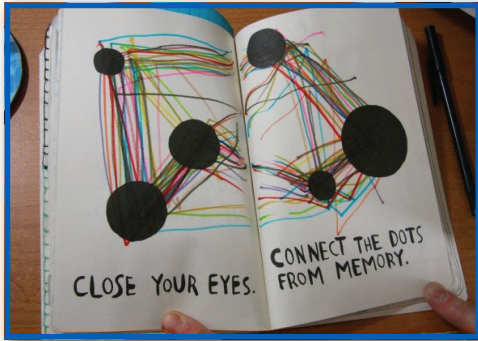 CLOSE YOUR EYES.
CONNECT THE DOTS
FROM MEMORY.